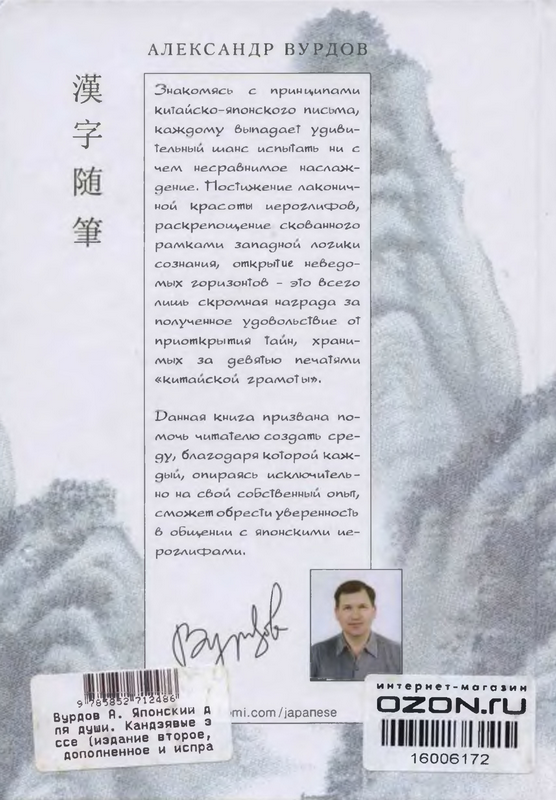 АЛЕКСАНДР ВУРДОВ
漢字随筆
Знакомясь с принципами
китайско-японского письма,
каждому выпадает удиви-
тельный шанс испытать ни с
чем несравнимое наслаж-
дение. Постижение лаконич-
ной красоты иероглифов,
раскрепощение скованного
рамками западной логики
сознания, открытие неведо-
мых горизонтов - это всего
лишь скромная награда за
полученное удовольствие от
приоткрытия тайн, храни-
мых за девятью печатями
«китайской грамоты».
Данная книга призвана по-
мочь читателю создать сре-
ду, благодаря которой каж-
дый, опираясь исключитель-
но на свой собственный опыт,
сможет обрести уверенность
в общении с японскими ие-
роглифами.
Вурдов
9 785852 712486
Вурдов А. Японский д
ля души. Кандзявые э
ссе (издание второе,
дополненное и испра
emi.com/japanese
интернет-магазин
OZON.ru
16006172